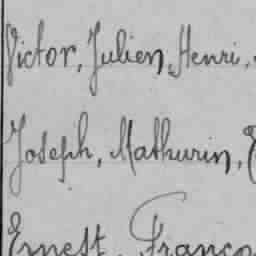 Victor, Julien, Henri,
Joseph, Mathurin,
Ernest, Franço